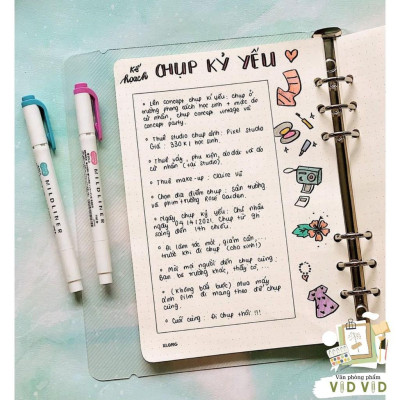 Kế hoạch CHỤP KỶ YẾU
• Lên concept chụp kỉ yếu: chụp ở
trường phong cách học sinh + mặc áo
cử nhân, chụp concept vintage và
concept party.
• Thuê studio chụp ảnh: Pixel Studio
Giá: 330K/ học sinh.
• Thuê váy, phụ kiện, áo dài với áo
cử nhân (tại studio).
• Thuê make-up: Claire Vũ
• Chọn địa điểm chụp: Sân trường
và phim trường Rose Garden.
• Ngày chụp kỷ yếu: Chủ nhật
ngày 04.14.2021. Chụp từ 9h
sáng đến 14h chiều.
• Đi làm tóc mới, giảm cân,...
trước khi đi chụp (cho xinh)
• Mời mọi người đến chụp cùng:
Bạn bè trường khác, thầy cô,...
• (Không bắt buộc) Mua máy
ảnh film đi mang theo để chụp
cùng.
• Cuối cùng: Đi chụp thôi !!!
KLONG
MILDLINER
MILDLINER
Văn phòng phẩm
VID VID